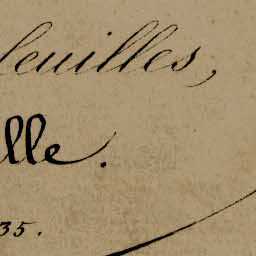 leuilles,
lle.
35.